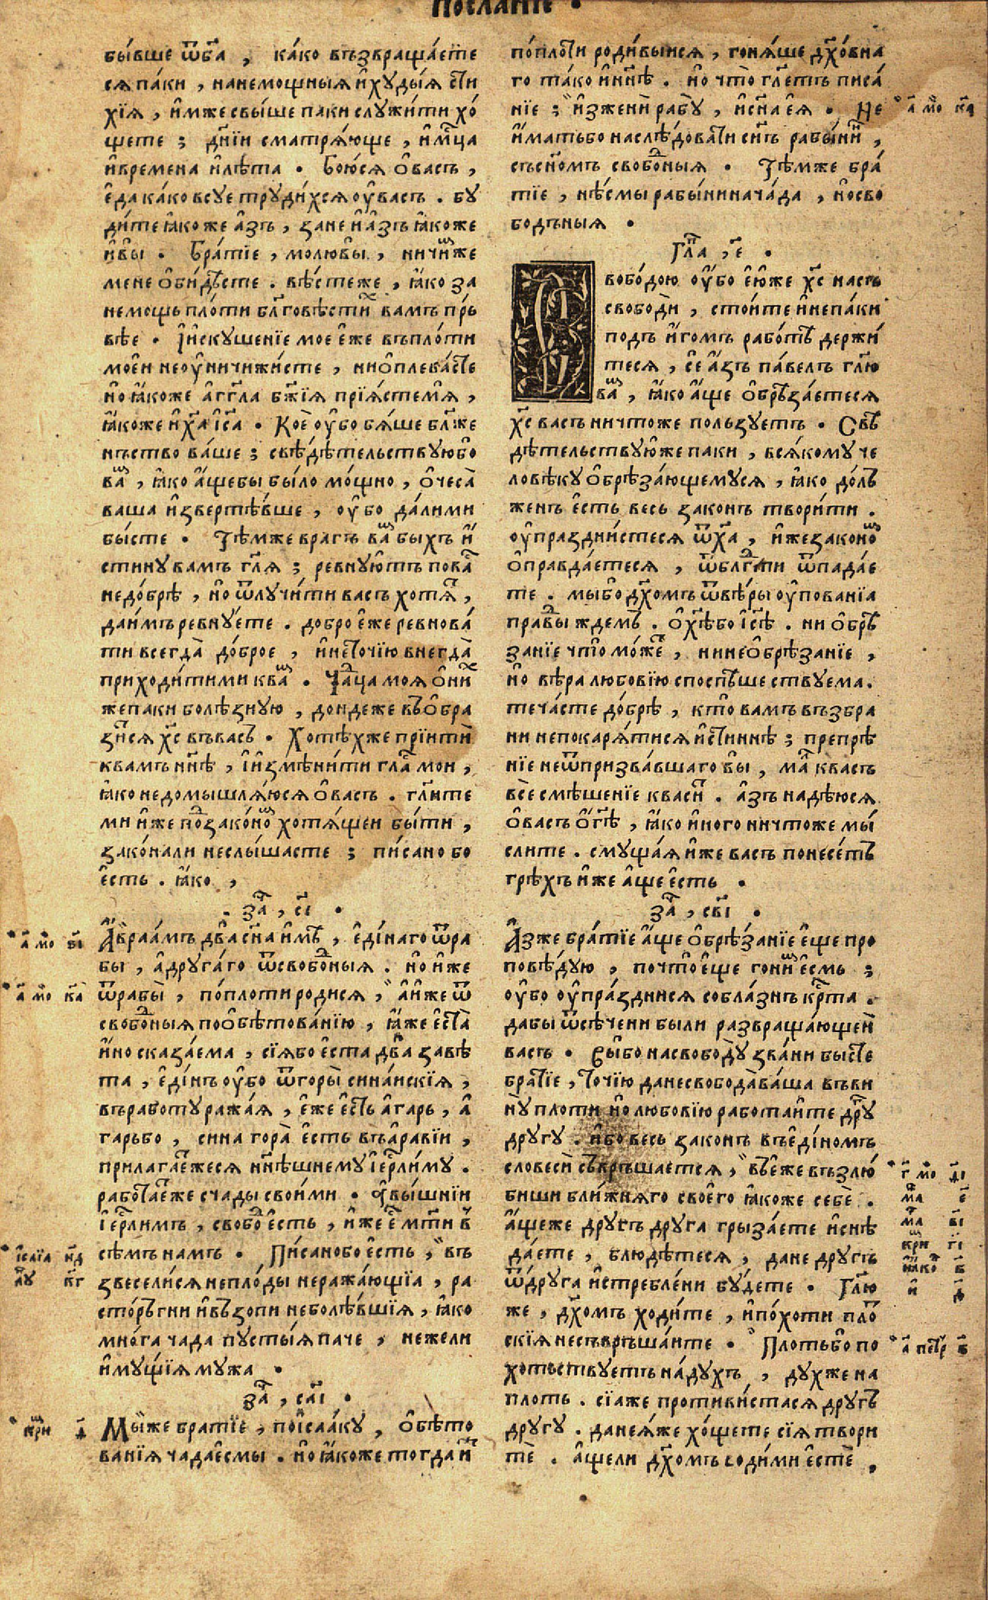 Посланїе .
бы́вше ѿбг҃а , ка́ко възвраща́ете
ся па́ки , нанемощны́я и҆худы́я сти
хїя , и҆мже свы́ше паки служи́ти хо́
щете ; дни́и сматря́юще , и҆мцⷭ҇а
и҆времена и҆лѣ́та . Бою́ся ѻ҆васъ ,
е҆да ка́ко всуе труди́хся оу҆васъ . бу́
ди́те ꙗ҆́коже а҆́зъ , зане и҆а҆́зъ ꙗ҆́коже
и҆вы̀ . Бра́тїе , молювы̀ , ничи́мже
мене ѻ҆би́дѣсте . вѣ́стеже , ꙗ҆́ко за
немощь пло́ти бл҃говѣсти́хъ вамъ пръ
вѣе . І҆искуше́нїе мое е҆́же въпло́ти
мое́и неоу҆ничижи́сте , ниѻ҆плева́сте
но ꙗ҆́коже а҆́гг҃ла бж҃їя прїя́стемя̀ ,
ꙗ҆́коже и҆хⷭ҇а і҆с҃а . Коѐ оу҆́бо бя́ше бл҃же
нъство ва́ше ; свѣдѣ́тельствуюбо
ва́мъ , ꙗ҆́ко а҆́щебы бы́ло мо́щно , ѻ҆чеса̀
ваша и҆звертѣ́вше , оу҆́бо да́лими
бы́сте . Тѣ́мже врагъ ва́мъ быхъ и҆́
стину вамъ гл҃я ; ревну́ютъ пова́съ
недо́брѣ , но ѿлучи́ти васъ хотя́тъ ,
даи҆мъ ревну́ете . добро е҆́же ревнова́
ти всегда̀ до́брое , и҆нето́чїю внегда̀
приходи́тими ква́мъ . Ча́дца моя ѻ҆ни́х
жепаки болѣ́зную , дондеже въѻ҆бра
зи́тся хⷭ҇ъ въвасъ . Хотѣ́хже прїитѝ
квамъ нн҃ѣ , и҆и҆змѣни́ти гла́съ мои ,
ꙗ҆́ко недомышля́юся ѻ҆васъ . гл҃ите
ми и҆́же подзако́номъ хотя́щеи бы́ти ,
зако́нали неслы́шасте ; пи́сано бо
е҆́сть . ꙗ҆́ко ,
за҃ , сі .
А҆враа́мъ два̀ сн҃а и҆мѣ̀ , е҆ди́наго ѿра
бы̀ , а҆друга́го ѿсвобо́дныя . но и҆́же
ѿрабы̀ , попло́ти роди́ся , а҆и҆́же ѿ
свобо́дныя поѻ҆бѣтова́нїю , ꙗ҆́же е҆ста̀
и҆́но сказа́ема , сїя́бо е҆́ста два̀ завѣ́
та , е҆ди́нъ оу҆́бо ѿгоры̀ сина́искїя ,
въработу ража́я , е҆́же е҆́сть а҆га́рь , а҆
га́рьбо , сина гора̀ е҆́сть въа҆ра́вїи ,
прилага́етжеся нн҃ѣшнему і҆ерⷭ҇лиму .
рабо́таетже счады свои́ми . а҆вы́шнїи
і҆ерⷭ҇лимъ , свобо́дь е҆́сть , и҆́же е҆́сть мт҃и в
сѣ́мъ намъ . Пи́санобо е҆́сть , въ
звесели́ся непло́ды неража́ющїа , ра
сто́ръгни и҆възопи неболѣ́вшїя , ꙗ҆́ко
мно́га чада пусты́я паче , нежели
и҆мущїя мужа .
за҃ , саі .
Мы́же братїе , поі҆саа́ку , ѻ҆бѣто
ва́нїя ча́даесмы̀ . но ꙗ҆́коже тогда и҆
попло́ти роди́выися , гоня́ше дх҃о́вна
го та́ко и҆нн҃ѣ . но что̀ гл҃етъ писа́
нїе ; и҆зженѝ рабу̀ , и҆сн҃а е҆я̀ . Не
и҆мать бо наслѣ́довати сн҃ъ рабы́нин ,
съсн҃омъ свобо́дныя . Тѣ́мже бра́
тїе , нѣ́смы рабы́нина ча́да , носво
бодъныя .
Гла , е҃ .
Свобо́дою оу҆́бо е҆́юже хⷭ҇ъ насъ
свободѝ , сто́ите и҆непа́ки
подъ и҆́гомъ рабо́тъ держи́
теся , се а҆зъ па́велъ гл҃ю
ва́мъ , ꙗ҆́ко а҆ще ѻ҆брѣза́етеся
хⷭ҇ъ васъ ничтоже по́льзуетъ . Свѣ
дѣ́тельствуюже паки , вся́кому че
ловѣ́ку ѻ҆брѣза́ющемуся , ꙗ҆́ко до́лъ
женъ е҆́сть весь зако́нъ твори́ти .
оу҆праздни́стеся ѿхⷭ҇а , и҆́жезако́номъ
ѻ҆правда́етеся , ѿблгⷣати ѿпада́е
те . мы́бо дх҃омъ ѿвѣ́ры оу҆пова́нїа
пра́вды ждемъ . ѻ҆хⷭ҇ѣбо і҆с҃ѣ . ни ѻ҆брѣ́
занїе что мо́жетъ , нинеѻ҆брѣ́занїе ,
но вѣ́ра любовїю споспѣ́шествуема .
теча́сте до́брѣ , кто̀ вамъ възбра
ни непокаря́тися и҆́стиннѣ ; препрѣ́
нїе неѿпризва́вшаго вы̀ , ма́лъ квасъ
все смѣше́нїе кваси́тъ . а҆зъ надѣ́юся
ѻ҆васъ ѻ҆гдⷭ҇ѣ , ꙗ҆́ко и҆́ного ничто́же мы́
слите . смуща́я и҆́же васъ понесе́тъ
грѣхъ и҆́же а҆ще е҆́сть .
за҃ , сві .
А҆зже бра́тїе а҆́ще ѻ҆брѣ́занїе е҆ще про
повѣ́дую , почто̀ е҆ще гони́мъ е҆смь ;
оу҆бо оу҆пра́зднися собла́знъ крⷭ҇та .
дабы̀ ѿсѣчени были развраща́ющеи
васъ . Выбо насвободу зва́ни бы́сте
бра́тїе , То́чїю данесвобода̀ ва́ша въви
ну̀ пло́ти но любовїю рабо́таите дру́гъ
другу . и҆́бо весь зако́нъ въе҆ди́номъ
словеси съвръша́ется , въе҆́же възлю́
биши бли́жняго своего ꙗ҆́коже себѐ .
а҆́щеже другъ друга грыза́ете и҆снѣ
да́ете , блюдѣ́теся , дане другъ
ѿдруга и҆стребле́ни бу́дете . Гл҃ю
же , дх҃омъ ходи́те , и҆по́хоти пло́т
скїя несъвръша́ите . Плотьбо по
хотьствуетъ надухъ , духже на
плоть . сїаже проти́вистася другъ
другу . данея́же хо́щете сїя твори
тѐ . а҆щели дх҃омъ води́ми е҆стѐ ,
а҃ мо ка
а҃ мо ві
а҃ мо ка
і҆са́їа нд
а҃ петр в